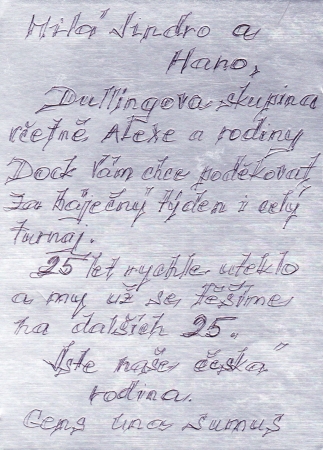 Milá Jindro a
Hano,
Dullingova skupina
včetně Alexe a rodiny
Dock Vám chce poděkovat
za báječný týden i celý
turnaj.
25 let rychle uteklo
a my už se těšíme
na dalších 25.
„Jste naše česká"
rodina.
Gens una sumus